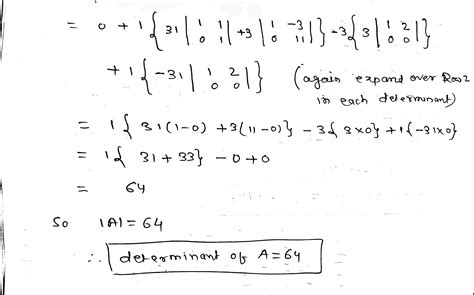 = 0 + 1 { 31 | 1 1 ; 0 1 | + 3 | 1 -3 ; 0 11 | } - 3 { 3 | 1 2 ; 0 0 | }
+ 1 { -31 | 1 2 ; 0 0 | } (again expand over Row 2
in each determinant)
= 1 { 31(1-0) + 3(11-0)} - 3{ 3x0} + 1{-31x0}
= 1{ 31 + 33} - 0 + 0
= 64
So |A| = 64
∴ determinant of A = 64